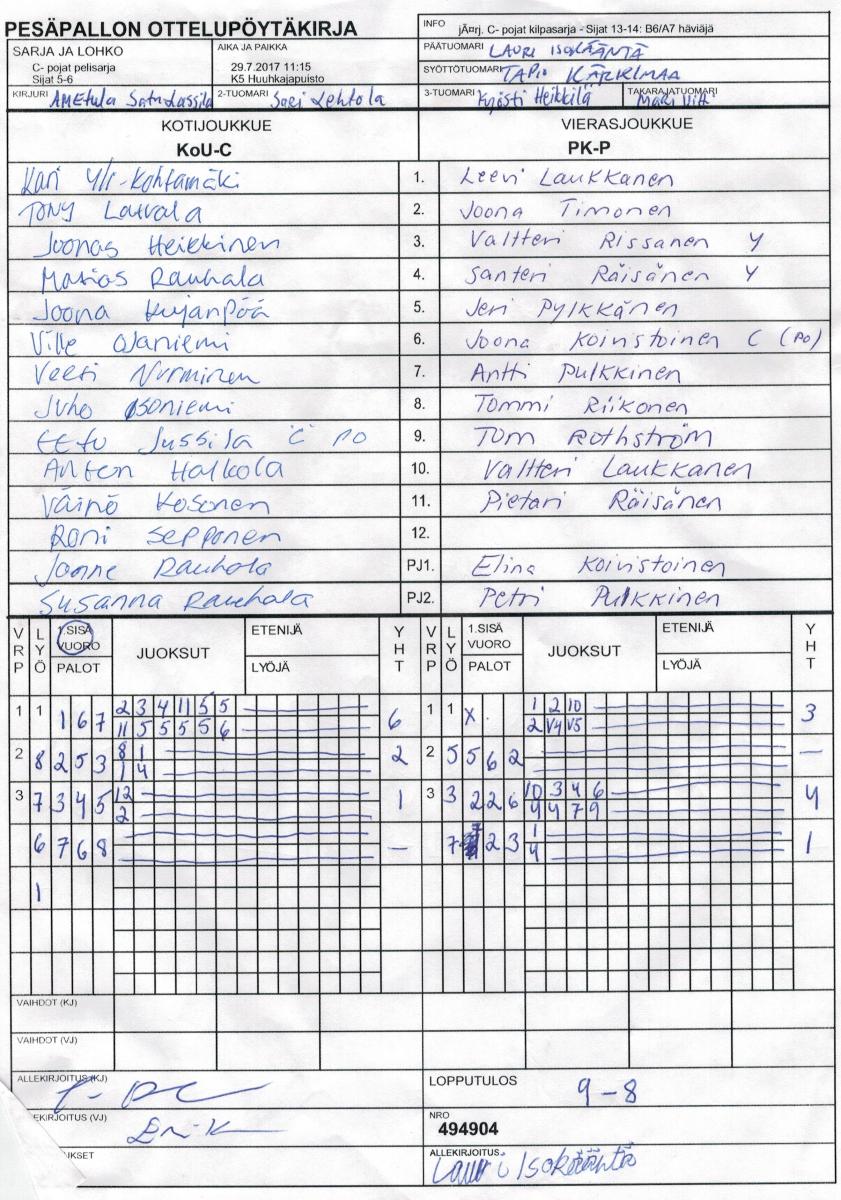 PESÄPALLON OTTELUPÖYTÄKIRJA
INFO jÃ¤rj. C- pojat kilpasarja - Sijat 13-14: B6/A7 häviäjä
SARJA JA LOHKO
C- pojat pelisarja
Sijat 5-6
AIKA JA PAIKKA
29.7.2017 11:15
K5 Huuhkajapuisto
PÄÄTUOMARI LAURI ISOKÄÄNTÄ
SYÖTTÖTUOMARI TAPIO KÄRKIMAA
KIRJURI
2-TUOMARI Sari Lehtola
3-TUOMARI Kyösti Heikkilä
TAKARAJATUOMARI Mari Vitti
KOTIJOUKKUE
KoU-C
VIERASJOUKKUE
PK-P
Kari Yli-Kohtamäki 1. Leevi Laukkanen
TONY Latvala 2. Joona Timonen
Joonas Heikkinen 3. Valtteri Rissanen Y
Matias Rauhala 4. Santeri Räisänen Y
Joona Kujanpää 5. Jeri Pylkkänen
Ville Ojaniemi 6. Joona Koivistoinen C (PO)
Veeti Nurminen 7. Antti Pulkkinen
Juho Isoniemi 8. Tommi Riikonen
EETU Jussila C PO 9. Tom Rothström
Anton Halkola 10. Valtteri Laukkanen
Väinö Kosonen 11. Pietari Räisänen
Roni Sepponen 12.
Janne Rauhala PJ1. Elina Koivistoinen
Susanna Rauhala PJ2. Petri Pulkkinen
VRP LYÖ 1.SISÄ VUORO PALOT JUOKSUT ETENIJÄ LYÖJÄ YHT VRP LYÖ 1.SISÄ VUORO PALOT JUOKSUT ETENIJÄ LYÖJÄ YHT
1 1 1 6 7 2 3 4 11 5 5 6 1 1 X 1 2 10 3
11 5 5 5 5 6 2 V4 V5
2 8 2 5 3 8 1 2 2 5 5 6 2 –
1 4
3 7 3 4 5 12 1 3 3 2 2 6 10 3 4 6 4
2 4 4 7 9
6 7 6 8 – 7 2 3 1 1
4
1
VAIHDOT (KJ)
VAIHDOT (VJ)
ALLEKIRJOITUS (KJ)
LOPPUTULOS 9-8
EKIRJOITUS (VJ)
NRO
494904
UKSET
ALLEKIRJOITUS Lauri Isokääntä